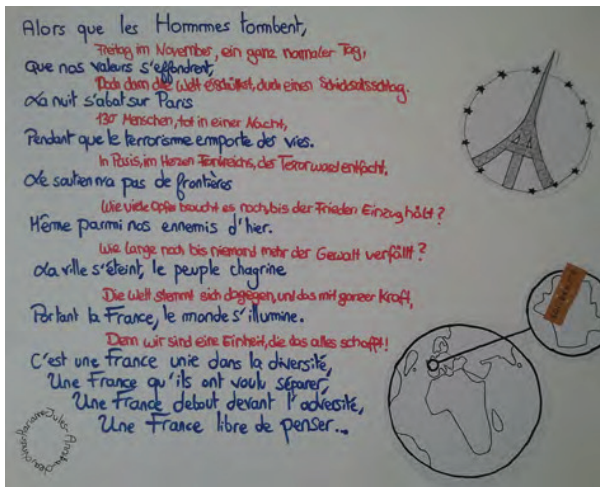 Alors que les Hommes tombent,
Freitag im November, ein ganz normaler Tag,
Que nos valeurs s'effondrent,
Doch dann die Welt erschüttert, durch einen Schicksalsschlag.
La nuit s'abat sur Paris
130 Menschen, tot in einer Nacht,
Pendant que le terrorisme emporte des vies.
In Paris, im Herzen Frankreichs, der Terror ward entfacht,
Le soutien n'a pas de frontières
Wie viele Opfer braucht es noch, bis der Frieden Einzug hält?
Même parmi nos ennemis d'hier.
Wie lange noch bis niemand mehr der Gewalt verfällt?
La ville s'éteint, le peuple chagrine
Die Welt stemmt sich dagegen, und das mit ganzer Kraft,
Portant la France, le monde s'illumine.
Denn wir sind eine Einheit, die das alles schafft!
C'est une France unie dans la diversité,
Une France qu'ils ont voulu séparer,
Une France debout devant l'adversité,
Une France libre de penser...